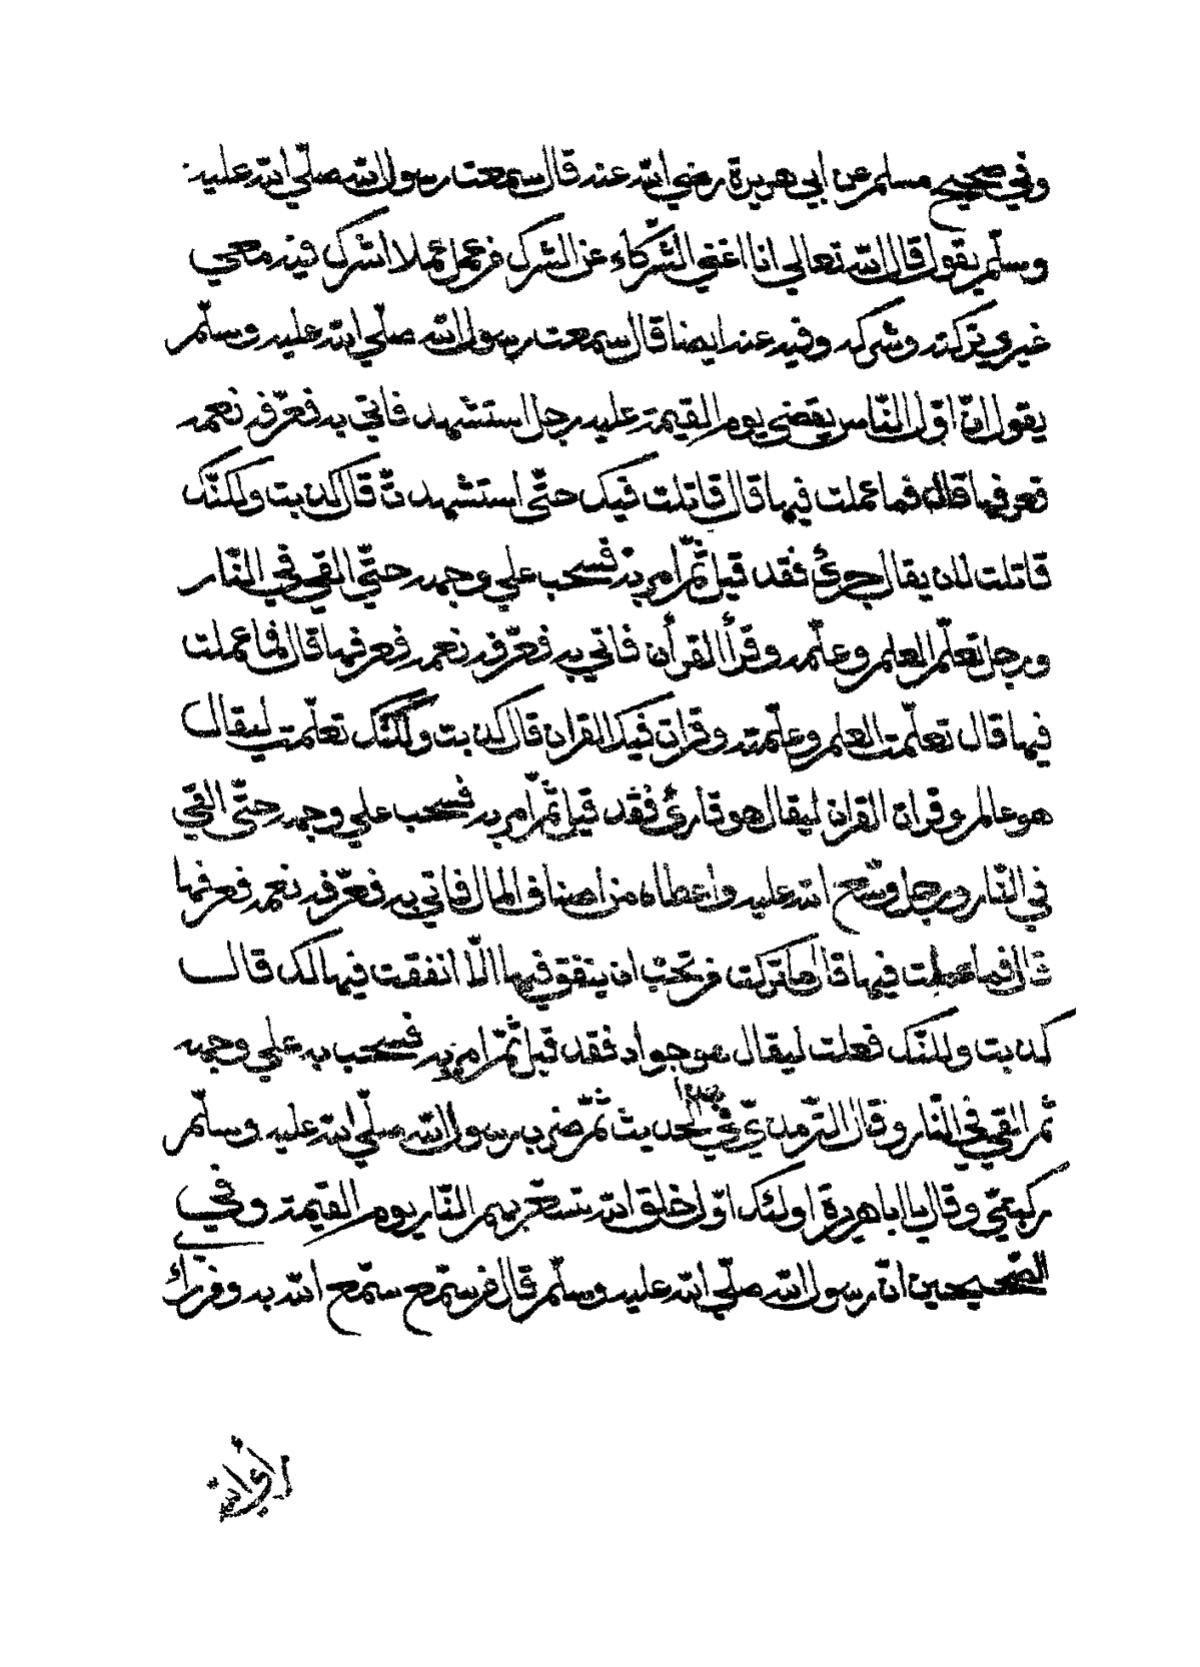 وفي صحيح مسلم عن ابي هريرة رضي الله عنه قال سمعت رسول الله صلّي الله عليه
وسلّم يقول قال الله تعالي انا اغني الشّركاء عن الشرك فمن عمل عملا اشرك فيه معي
غيري تركته وشركه وفيه عنه ايضا قال سمعت رسول الله صلّي الله عليه وسلّم
يقول انّ اوّل النّاس يقضي يوم القيمة عليه رجل استشهد فاتي به فعرّفه نعمه
فعرفها قال فما عملت فيها قال قاتلت فيك حتّي استشهدت قال كذبت ولكنّك
قاتلت لان يقال جرئ فقد قيل ثمّ امر به فسحب علي وجهه حتّي القي في النّار
ورجل تعلّم العلم وعلّمه وقرأ القرأن فاتي به فعرّفه نعمه فعرفها قال فما عملت
فيها قال تعلّمت العلم وعلّمته وقرات فيك القران قال كذبت ولكنّك تعلّمت ليقال
هو عالم وقرات القران ليقال هو قارئ فقد قيل ثمّ امر به فسحب علي وجهه حتّي القي
في النّار ورجل وسّع الله عليه واعطاه من اصناف المال فاتي به فعرّفه نعمه فعرفها
قال فما عملت فيها قال ما تركت من تحبّ ان ينفق فيها الّا انفقت فيها لك قال
كذبت ولكنّك فعلت ليقال هو جواد فقد قيل ثمّ امر به فسحب به علي وجهه
ثمّ القي في النّار وقال التّرمذيّ في الحديث ثمّ ضرب رسول الله صلّي الله عليه وسلّم
ركبتيّ وقال يا ابا هريرة اولئك اوّل خلق الله تسعّر بهم النّار يوم القيمة وفي
الصّحيحين انّ رسول الله صلّي الله عليه وسلّم قال من سمّع سمّع الله به ومن راء